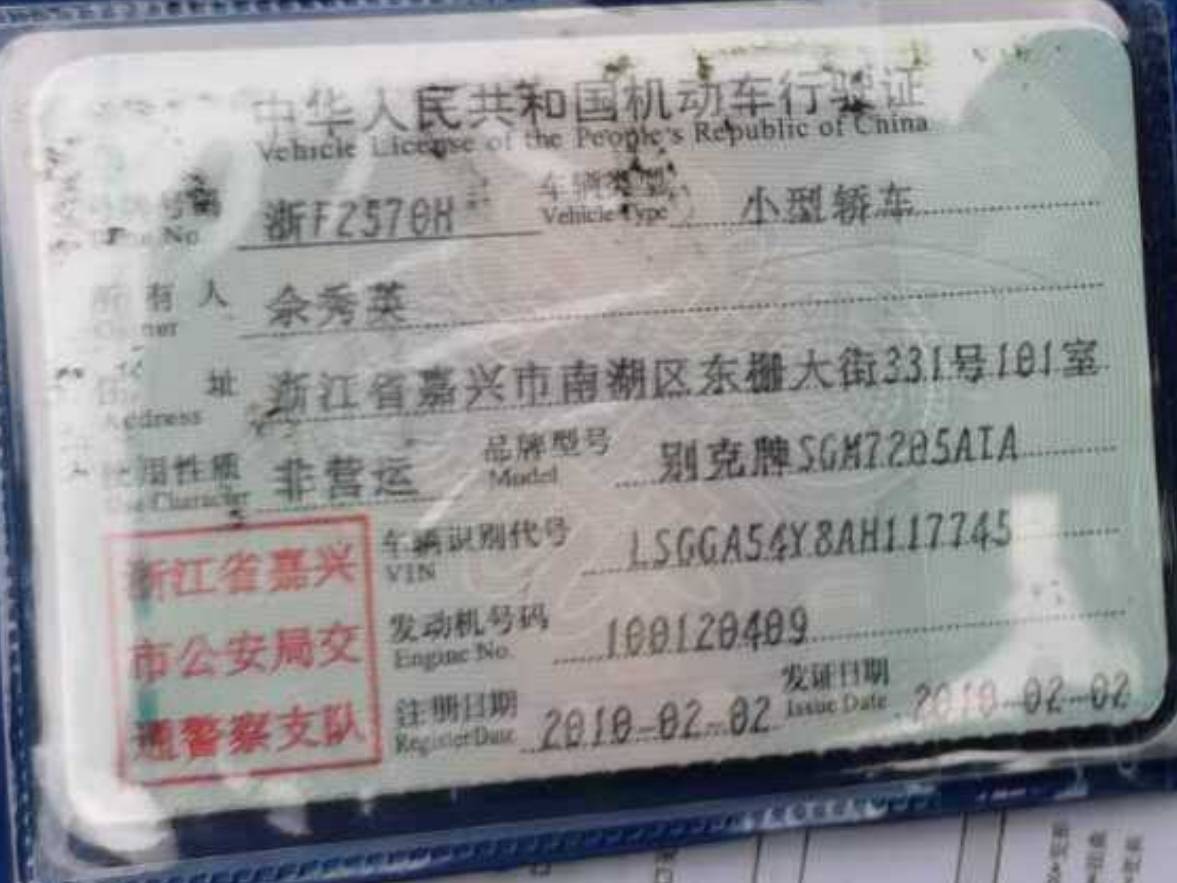 中华人民共和国机动车行驶证
Vehicle License of the People's Republic of China
号牌号码 浙F2570H 车辆类型 小型轿车
Plate No. Vehicle Type
所有人 余秀英
Owner
住址 浙江省嘉兴市南湖区东栅大街331号101室
Address
使用性质 非营运 品牌型号 别克牌SGM7205ATA
Use Character Model
车辆识别代号 LSGGA54Y8AH117745
VIN
发动机号码 100120409
Engine No.
注册日期 2010-02-02 发证日期 2010-02-02
Register Date Issue Date
浙江省嘉兴
市公安局交
通警察支队